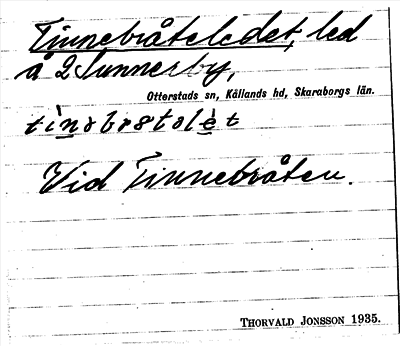 Tinnebråteledet, led
å 2 Sunnerby,
Otterstads sn, Kållands hd, Skaraborgs län.
tìnəbrətəlèt
Vid Tinnebråten.
THORVALD JONSSON 1935.